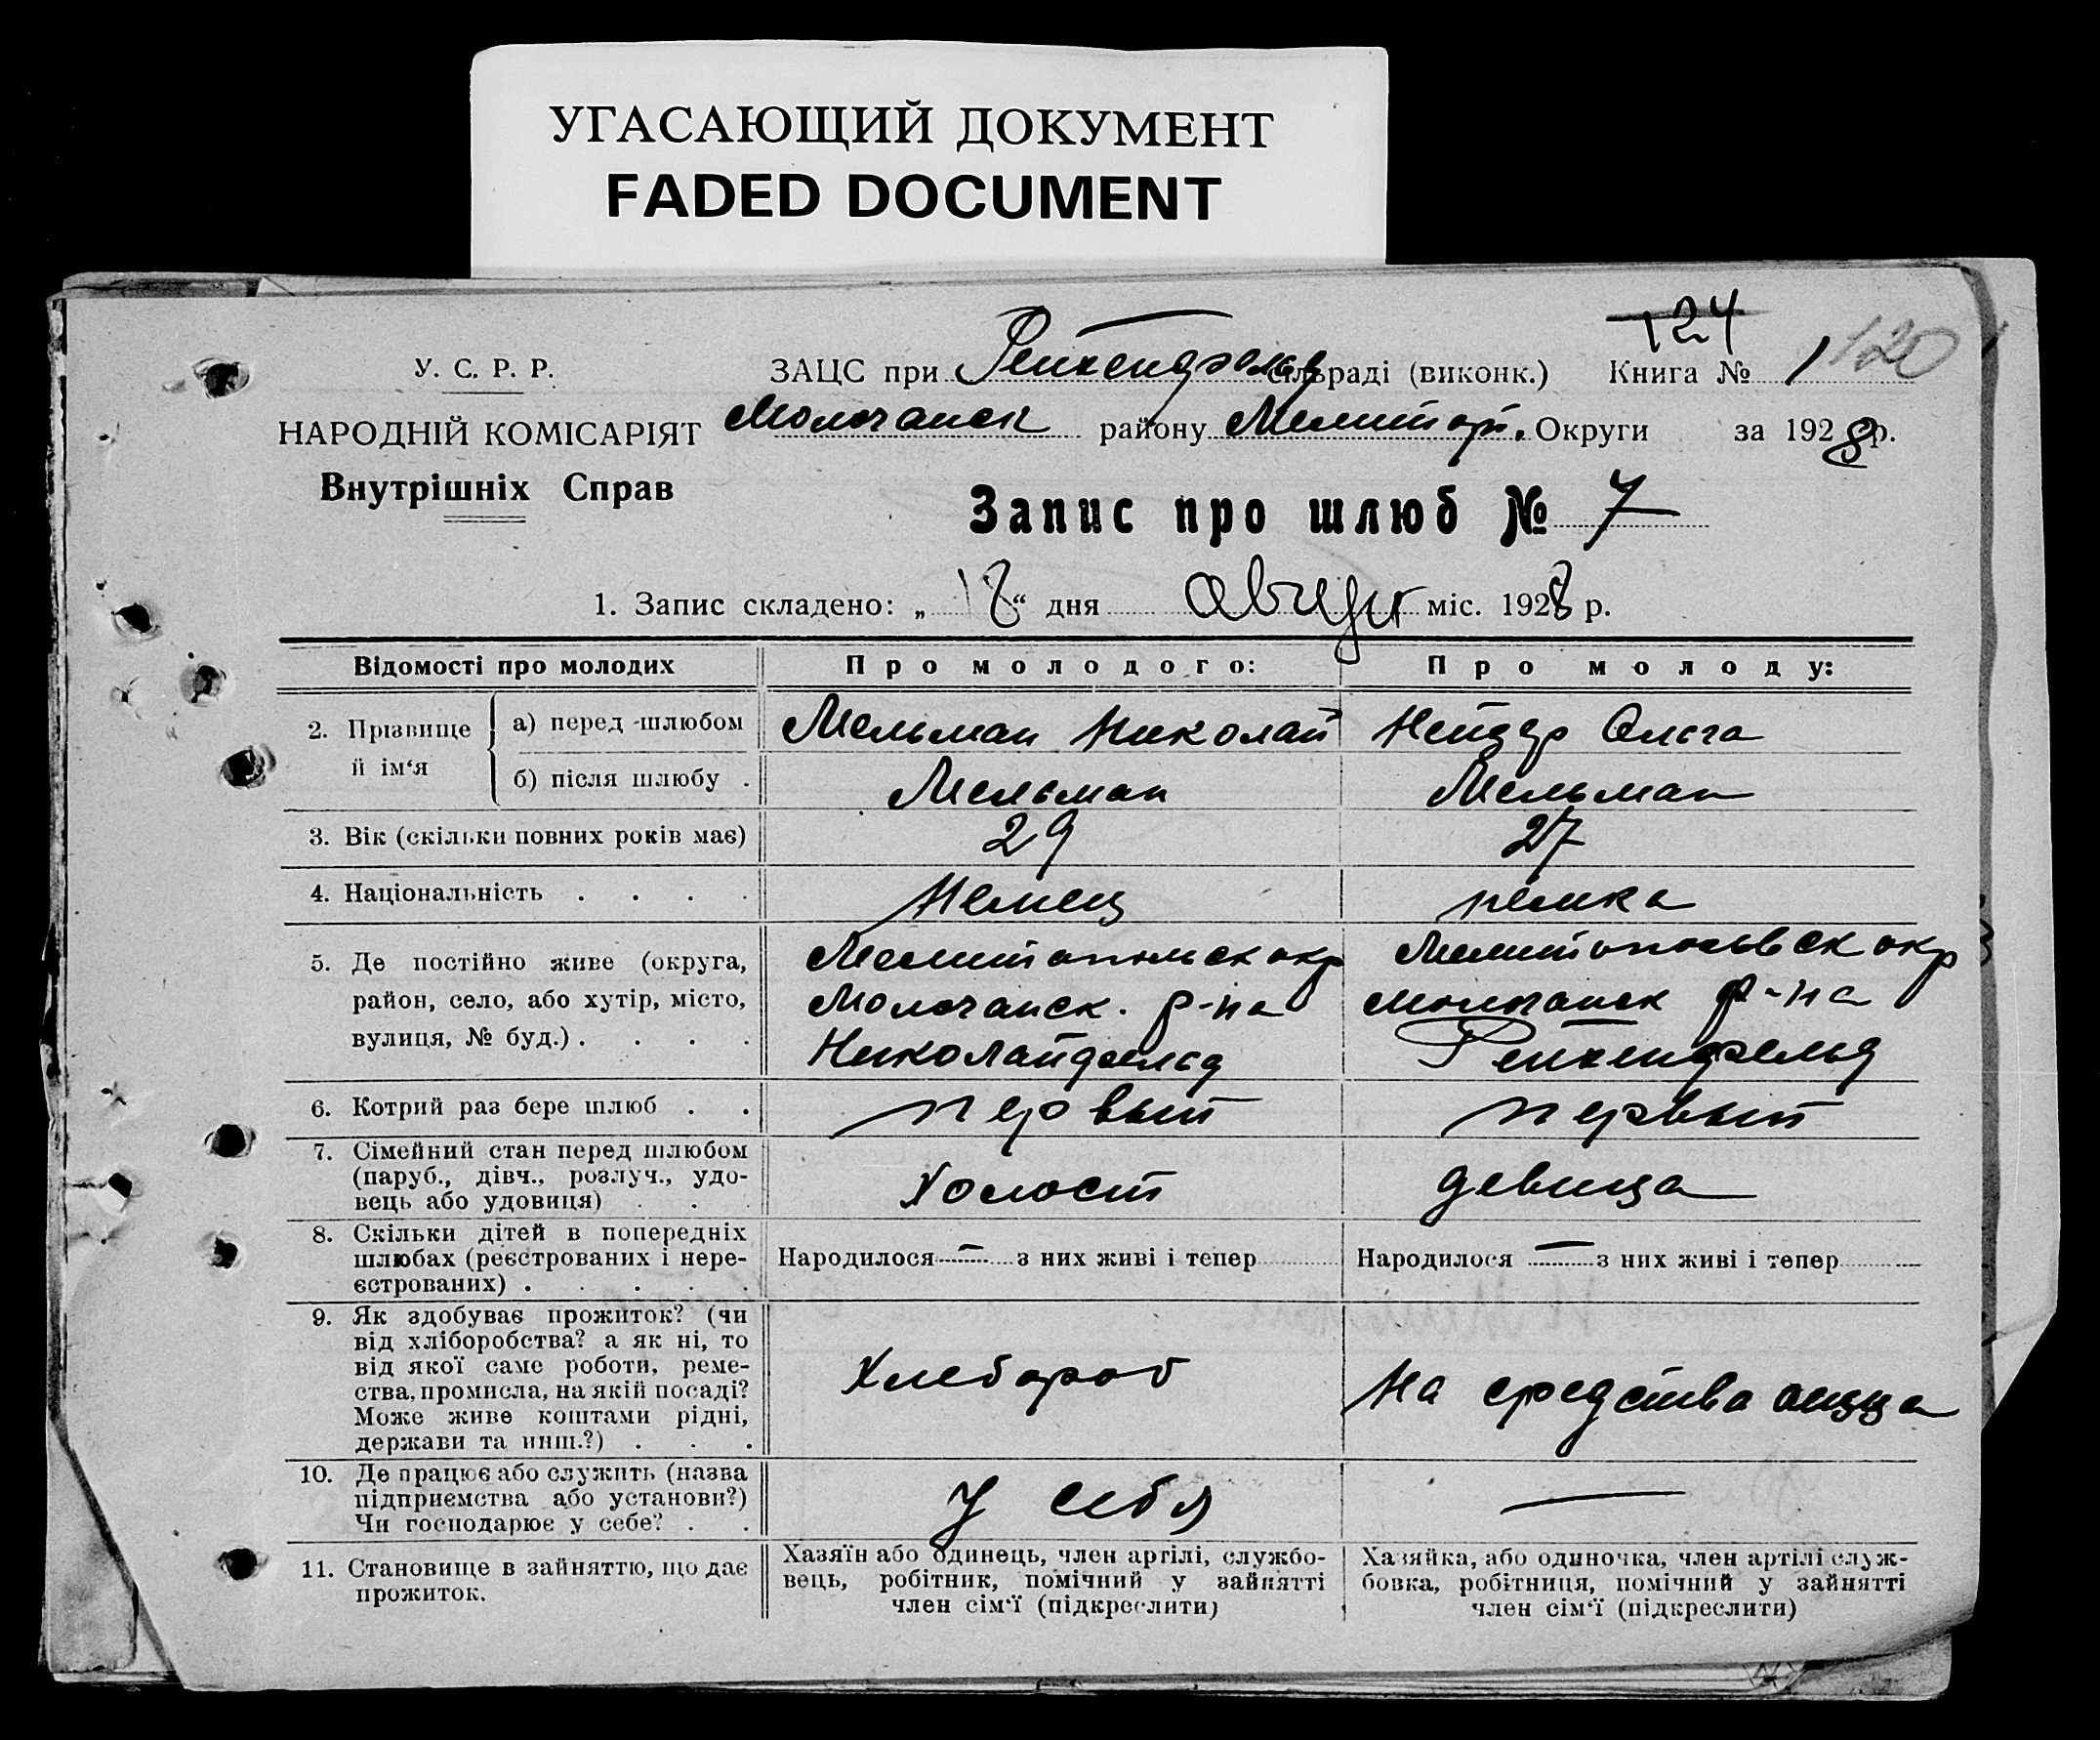 УГАСАЮЩИЙ ДОКУМЕНТ
FADED DOCUMENT
124
У. С. Р. Р.
ЗАЦС при Рейхенфельд сільраді (виконк.) Книга № 1 120
НАРОДНІЙ КОМІСАРІЯТ
Молочанск району Мелитоп. Округи за 1928 р.
Внутрішніх Справ
Запис про шлюб № 7
1. Запис складено: „18“ дня август міс. 1928 р.
Відомості про молодих
Про молодого:
Про молоду:
2. Прізвище й ім‘я
а) перед шлюбом
Мельман Николай
Нейдер Ольга
б) після шлюбу .
Мельман
Мельман
3. Вік (скільки повних років має)
29
27
4. Національність . . . .
Немец
немка
5. Де постійно живе (округа,
район, село, або хутір, місто,
вулиця, № буд.) . . . .
Мелитопольск окр
Молочанск. р-на
Николайфельд
Мелитопольвск окр
Молочанск р-на
Рейхенфельд
6. Котрий раз бере шлюб . .
первый
первый
7. Сімейний стан перед шлюбом
(паруб., дівч., розлуч., удо-
вець або удовиця) . . .
Холост
девица
8. Скільки дітей в попередніх
шлюбах (реєстрованих і нере-
єстрованих) . . . . .
Народилося — з них живі і тепер
Народилося — з них живі і тепер
9. Як здобуває прожиток? (чи
від хліборобства? а як ні, то
від якої саме роботи, реме-
ства, промисла, на якій посаді?
Може живе коштами рідні,
держави та инш.?) . . .
Хлебороб
На средства отца
10. Де працює або служить (назва
підприємства або установи?)
Чи господарює у себе? . .
У себя
—
11. Становище в зайняттю, що дає
прожиток.
Хазяїн або одинець, член артілі, службо-
вець, робітник, помічний у зайнятті
член сім‘ї (підкреслити)
Хазяйка, або одиночка, член артілі служ-
бовка, робітниця, помічний у зайнятті
член сім‘ї (підкреслити)